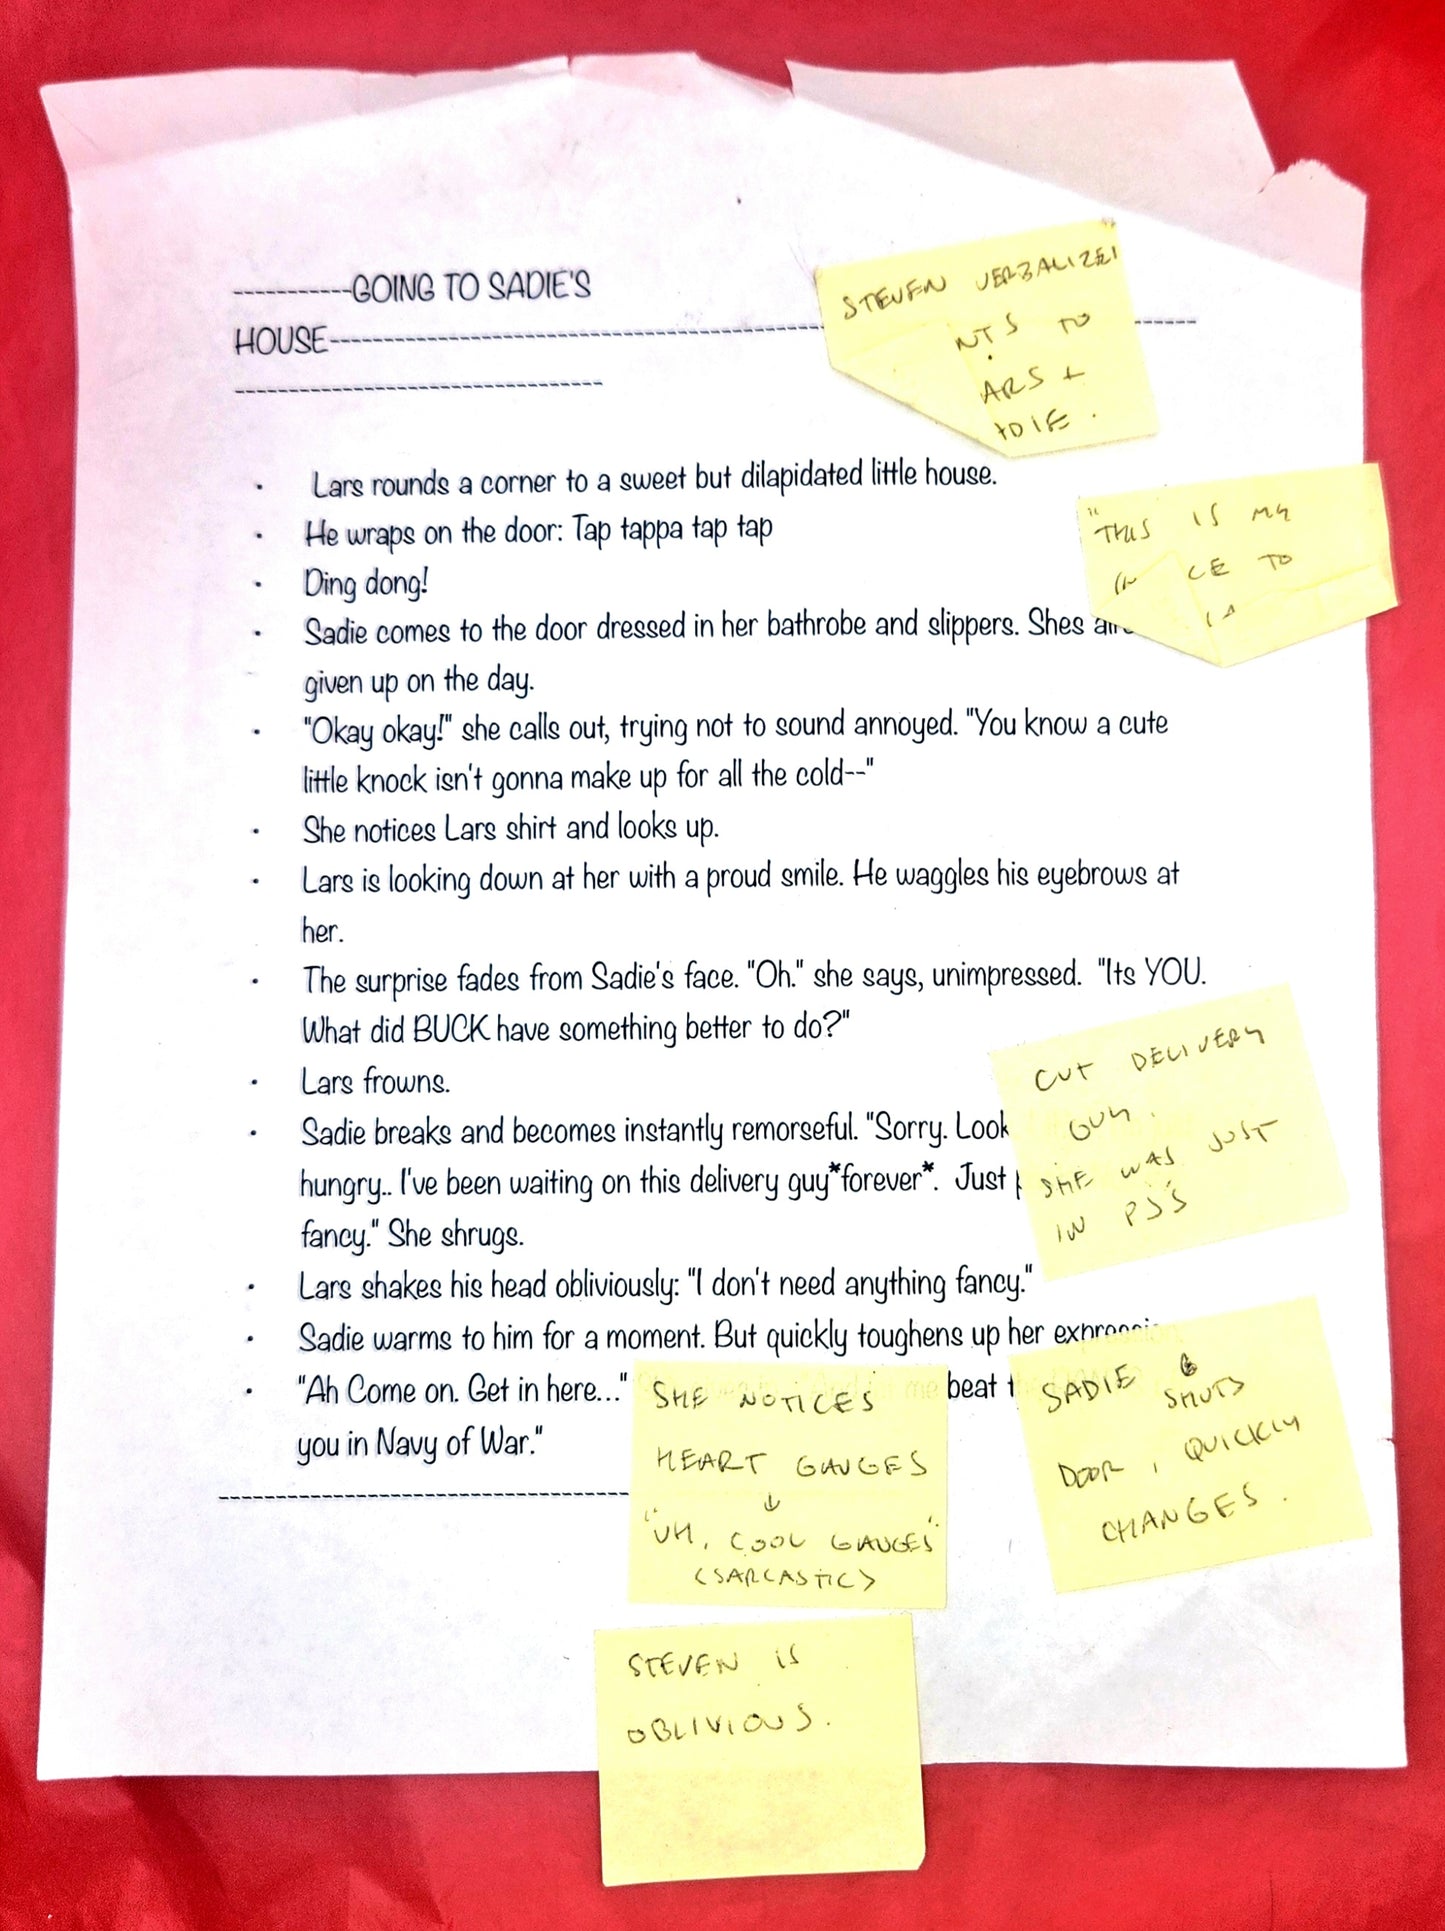 -----------GOING TO SADIE'S
HOUSE----------------------------------------------
----------------------------------
STEVEN VERBALIZES
NTS TO
ARS +
ADIE.
· Lars rounds a corner to a sweet but dilapidated little house.
· He wraps on the door: Tap tappa tap tap
· Ding dong!
"THIS IS MY
CE TO
· Sadie comes to the door dressed in her bathrobe and slippers. Shes
given up on the day.
· "Okay okay!" she calls out, trying not to sound annoyed. "You know a cute
little knock isn't gonna make up for all the cold--"
· She notices Lars shirt and looks up.
· Lars is looking down at her with a proud smile. He waggles his eyebrows at
her.
· The surprise fades from Sadie's face. "Oh." she says, unimpressed. "Its YOU.
What did BUCK have something better to do?"
· Lars frowns.
· Sadie breaks and becomes instantly remorseful. "Sorry. Look
hungry.. I've been waiting on this delivery guy*forever*. Just
fancy." She shrugs.
CUT DELIVERY
GUY.
SHE WAS JUST
IN PJ'S
· Lars shakes his head obliviously: "I don't need anything fancy."
· Sadie warms to him for a moment. But quickly toughens up her
· "Ah Come on. Get in here..." beat
you in Navy of War."
SHE NOTICES
HEART GAUGES
↓
"UH, COOL GAUGES"
(SARCASTIC)
SADIE
SHUTS
DOOR, QUICKLY
CHANGES.
STEVEN IS
OBLIVIOUS.